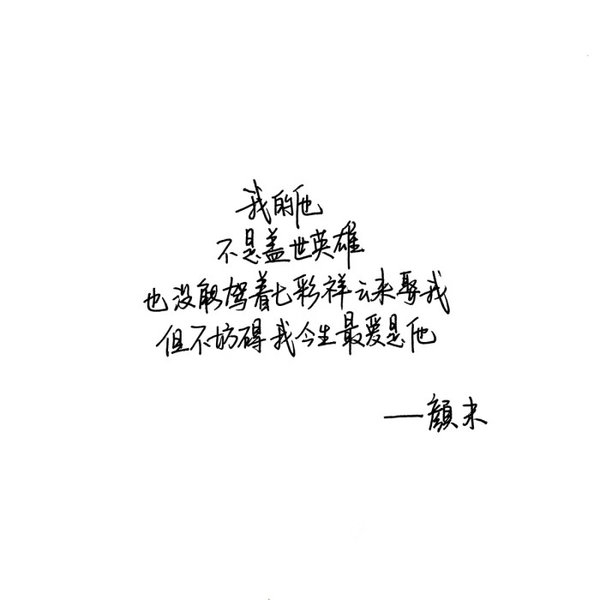 我的他
不是盖世英雄
也没能驾着七彩祥云来娶我
但不妨碍我今生最爱是他
——顔未